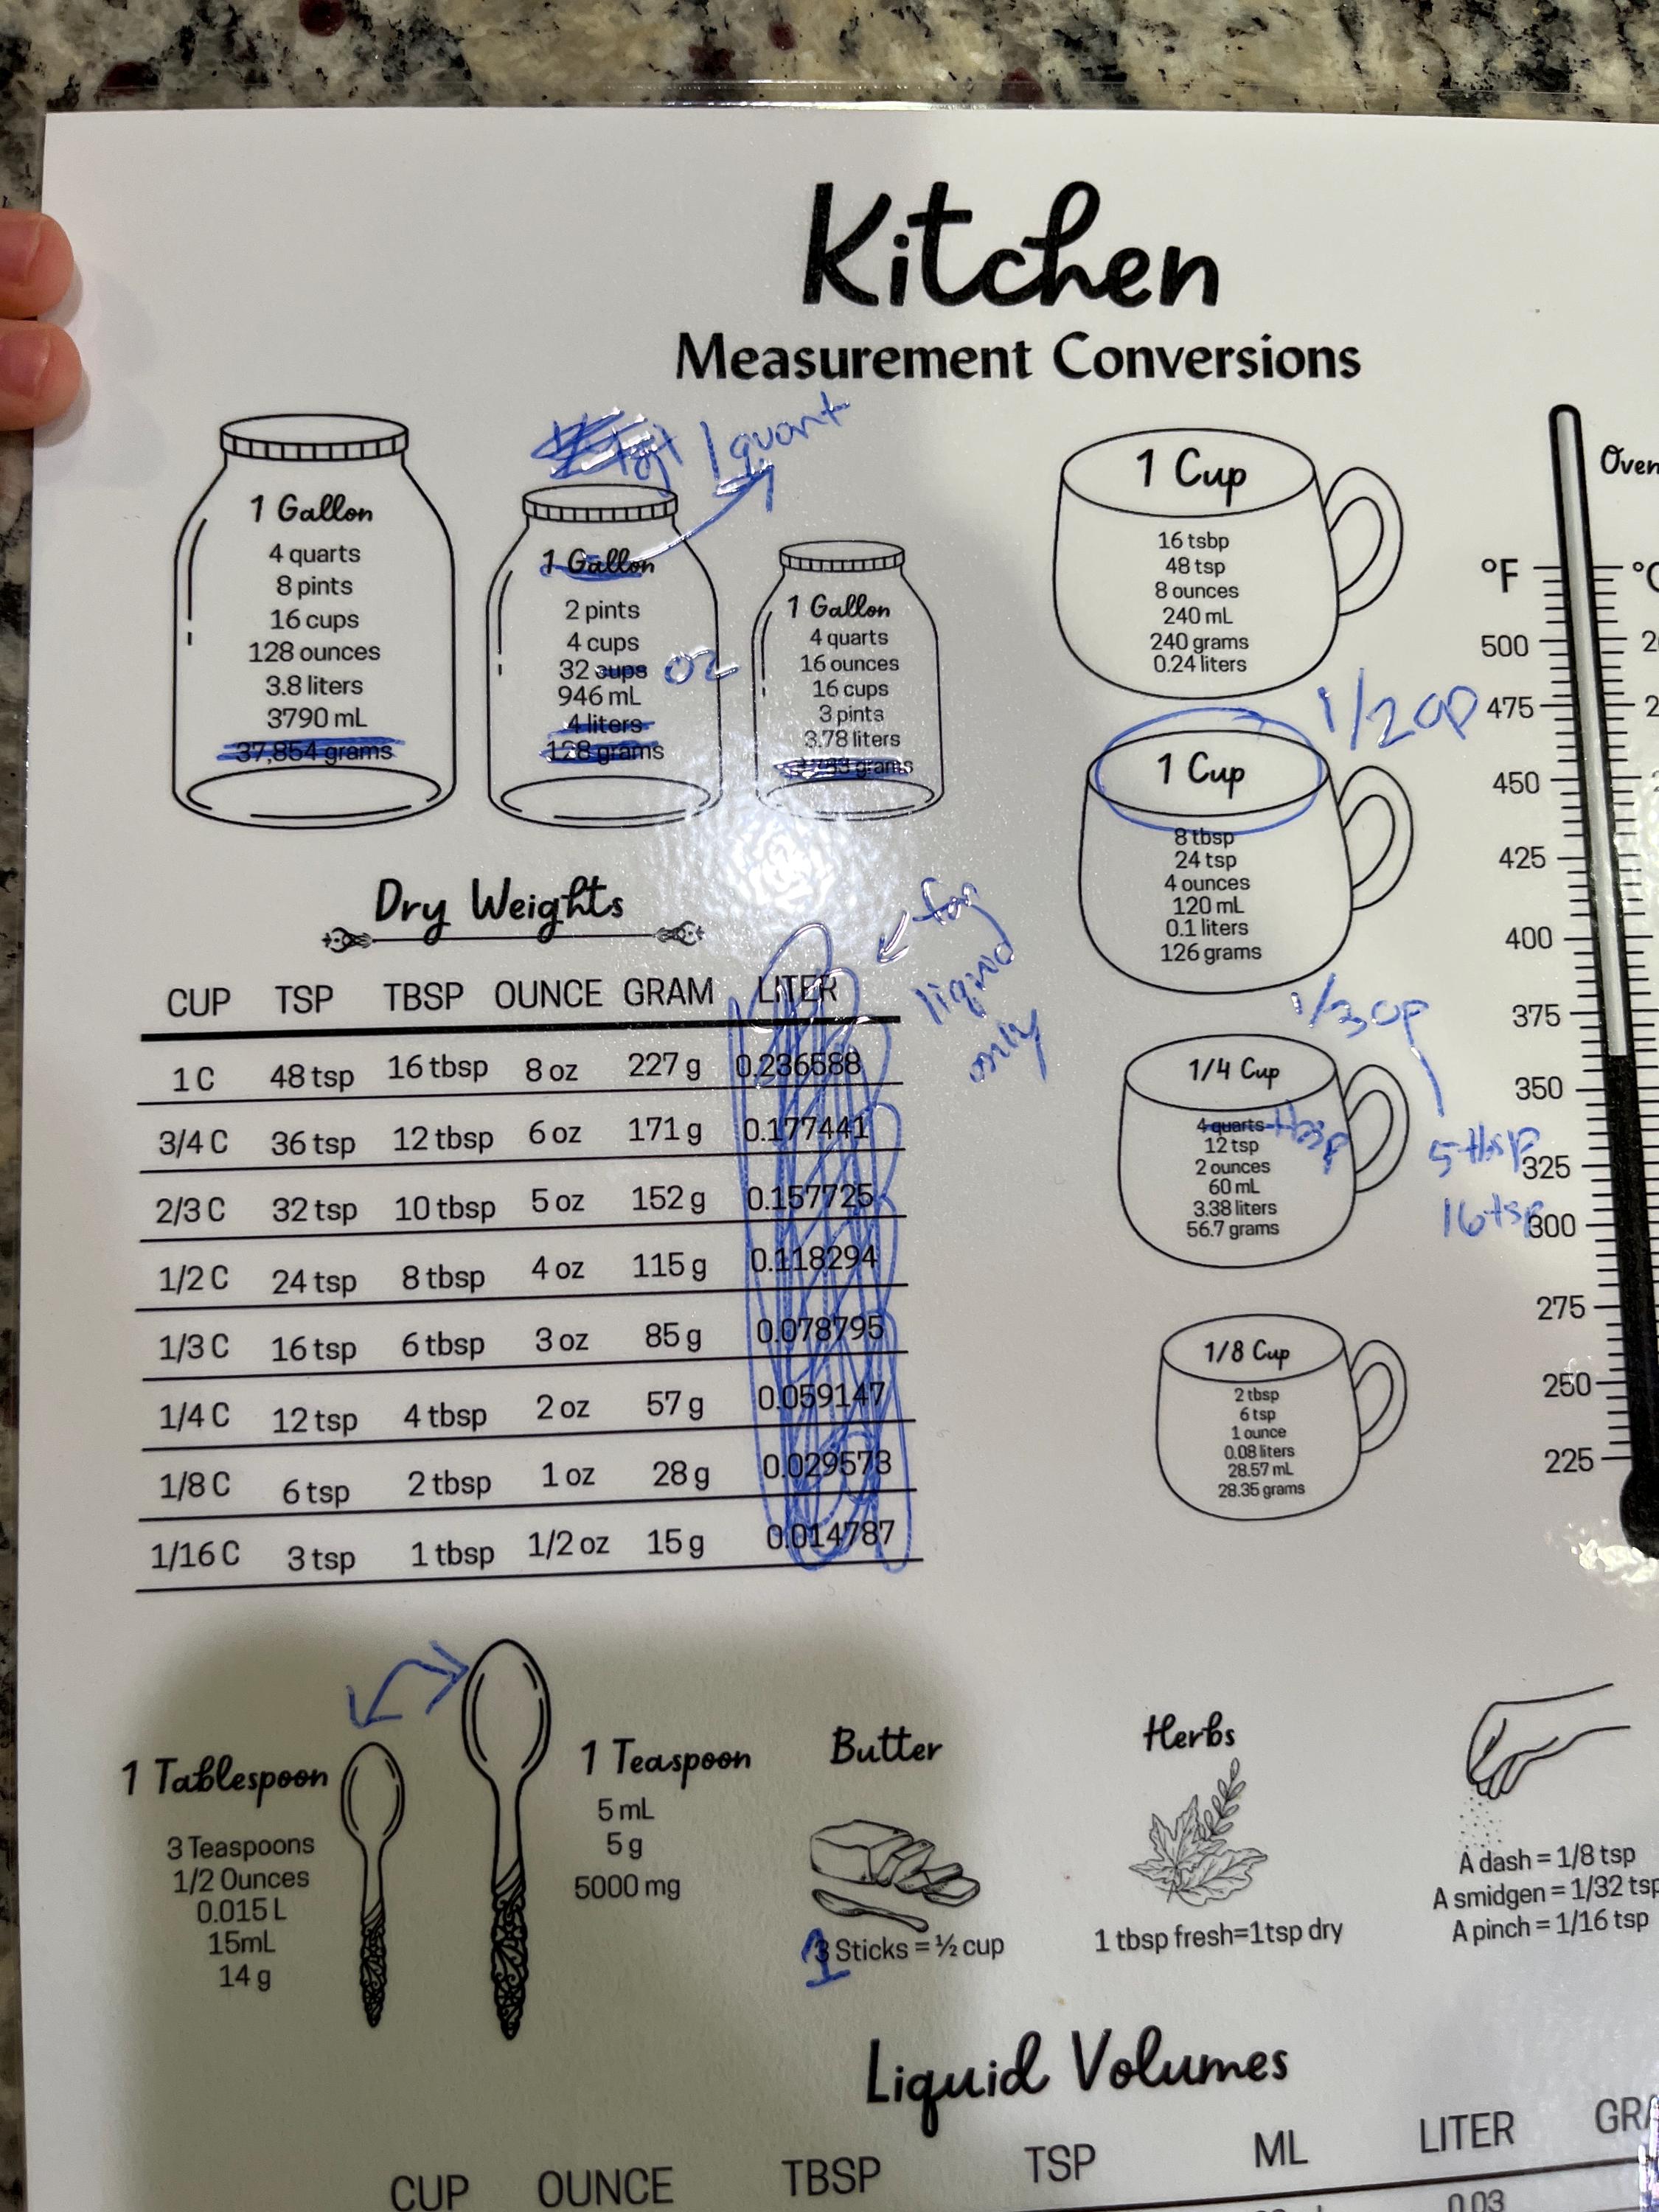 Kitchen
Measurement Conversions
1 quart
1 Gallon
4 quarts
8 pints
16 cups
128 ounces
3.8 liters
3790 mL
37,854 grams
1 Gallon
2 pints
4 cups
32 cups oz
946 mL
4 liters
128 grams
1 Gallon
4 quarts
16 ounces
16 cups
3 pints
3.78 liters
grams
1 Cup
16 tsbp
48 tsp
8 ounces
240 mL
240 grams
0.24 liters
1/2 cp
1 Cup
8 tbsp
24 tsp
4 ounces
120 mL
0.1 liters
126 grams
1/3 cp
5 tbsp
16 tsp
1/4 Cup
4 quarts tbsp
12 tsp
2 ounces
60 mL
3.38 liters
56.7 grams
1/8 Cup
2 tbsp
6 tsp
1 ounce
0.08 liters
28.57 mL
28.35 grams
Oven
°F
500
475
450
425
400
375
350
325
300
275
250
225
Dry Weights
for
liquid
only
CUP TSP TBSP OUNCE GRAM LITER
1 C 48 tsp 16 tbsp 8 oz 227 g 0.236588
3/4 C 36 tsp 12 tbsp 6 oz 171 g 0.177441
2/3 C 32 tsp 10 tbsp 5 oz 152 g 0.157725
1/2 C 24 tsp 8 tbsp 4 oz 115 g 0.118294
1/3 C 16 tsp 6 tbsp 3 oz 85 g 0.078795
1/4 C 12 tsp 4 tbsp 2 oz 57 g 0.059147
1/8 C 6 tsp 2 tbsp 1 oz 28 g 0.029573
1/16 C 3 tsp 1 tbsp 1/2 oz 15 g 0.014787
1 Tablespoon
3 Teaspoons
1/2 Ounces
0.015 L
15mL
14 g
1 Teaspoon
5 mL
5 g
5000 mg
Butter
1 Sticks = ½ cup
Herbs
1 tbsp fresh=1tsp dry
A dash = 1/8 tsp
A smidgen = 1/32 tsp
A pinch = 1/16 tsp
Liquid Volumes
CUP OUNCE TBSP TSP ML LITER
0.03